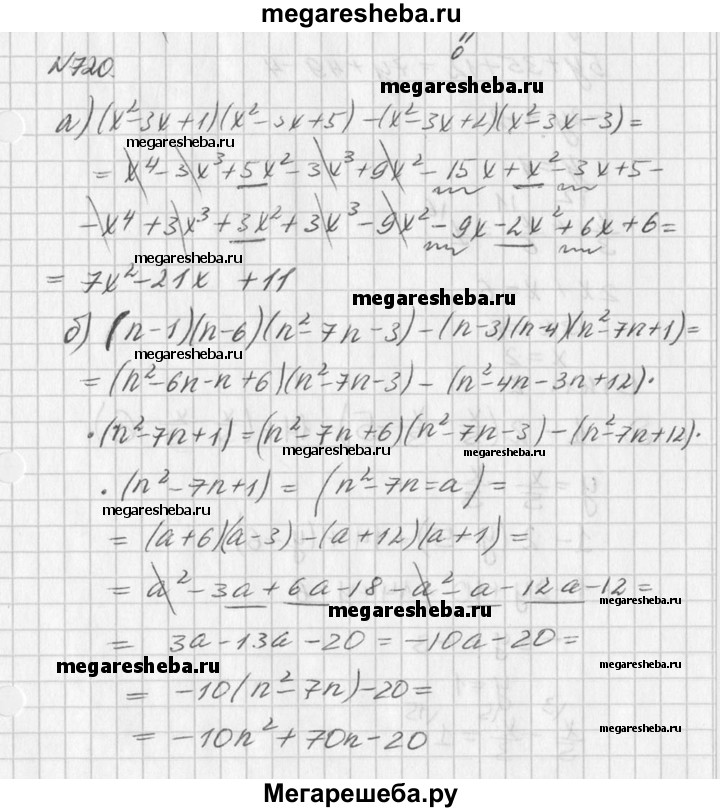 megaresheba.ru
№720.
megaresheba.ru
а) (x²-3x+1)(x²-3x+5)-(x²-3x+2)(x²-3x-3)=
= x⁴-3x³+5x²-3x³+9x²-15x+x²-3x+5-
-x⁴+3x³+3x²+3x³-9x²-9x-2x²+6x+6=
megaresheba.ru
= 7x²-21x +11
megaresheba.ru
б) (n-1)(n-6)(n²-7n-3)-(n-3)(n-4)(n²-7n+1)=
= (n²-6n-n+6)(n²-7n-3)-(n²-4n-3n+12)·
·(n²-7n+1)=(n²-7n+6)(n²-7n-3)-(n²-7n+12)·
megaresheba.ru megaresheba.ru
·(n²-7n+1)= (n²-7n=a)=
megaresheba.ru
= (a+6)(a-3)-(a+12)(a+1)=
= a²-3a+6a-18-a²-a-12a-12=
megaresheba.ru megaresheba.ru
= 3a-13a-20=-10a-20=
megaresheba.ru megaresheba.ru
= -10(n²-7n)-20=
= -10n²+70n-20
megaresheba.ru
Мегарешеба.ру